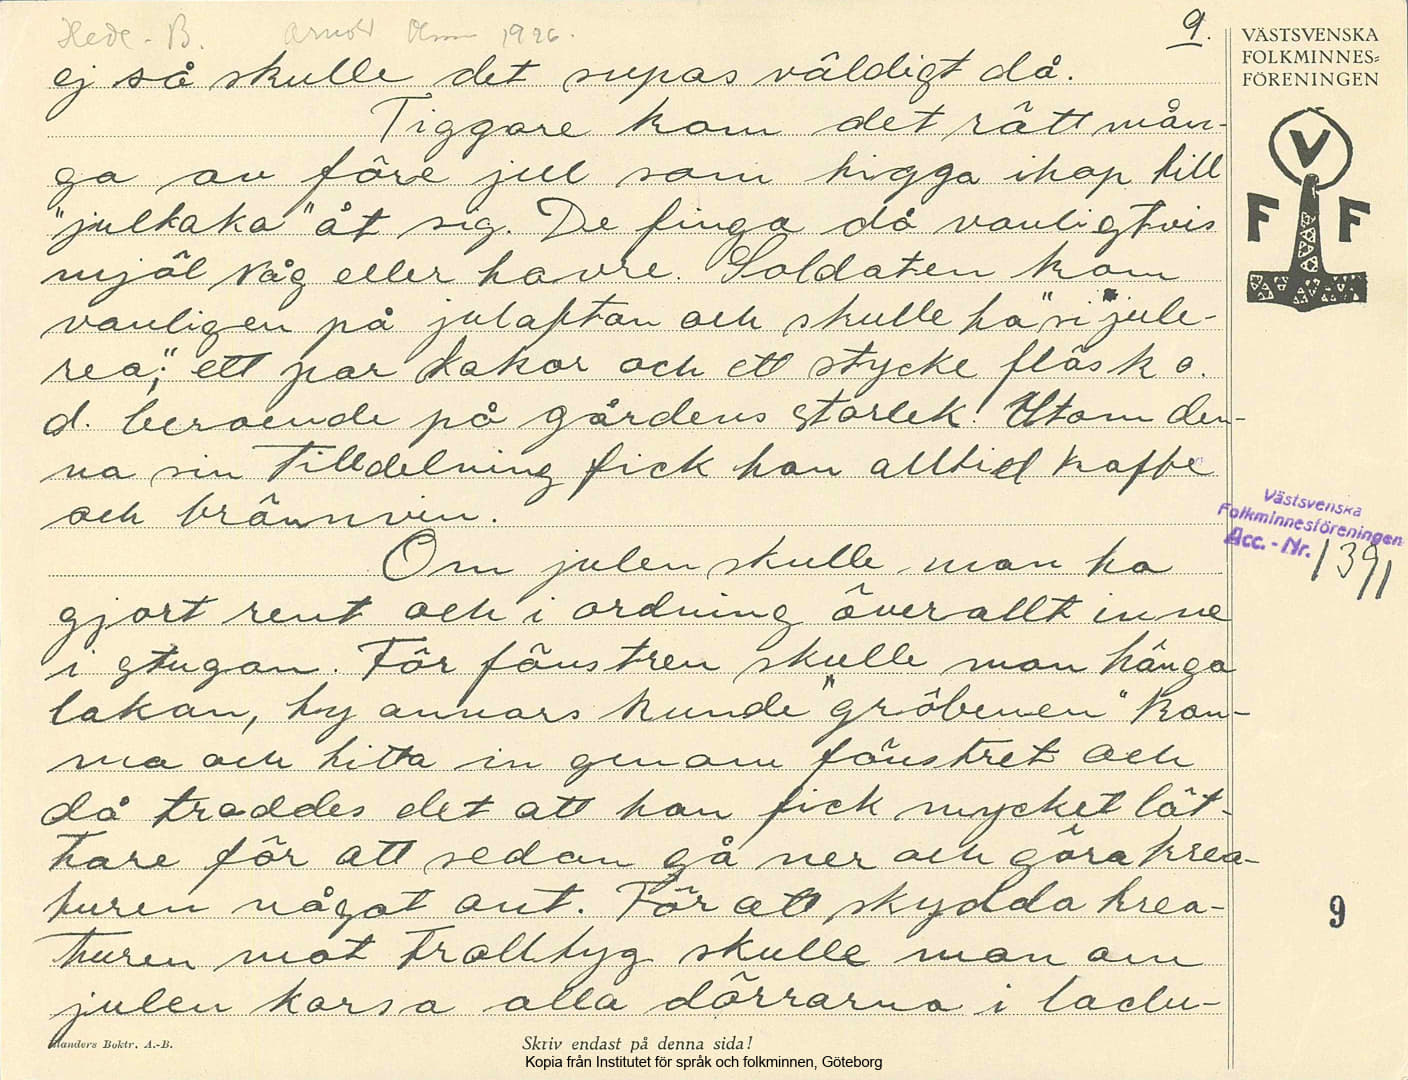 Hede - B. Arnold Olsson 1926.
9.
VÄSTSVENSKA
FOLKMINNES=
FÖRENINGEN
V
F F
ej så skulle det supas väldigt då.
Tiggare kom det rätt mån-
ga av före jul som tigga ihop till
"julkaka" åt sig. De finga då vanligtvis
mjöl råg eller havre. Soldaten kom
vanligen på julaftan och skulle ha "si jule-
rea;" ett par kakor och ett stycke fläsk o.
d. beroende på gårdens storlek. Utom den-
na sin tilldelning fick han alltid kaffe
och brännvin.
Om julen skulle man ha
gjort rent och i ordning överallt inne
i stugan. För fönstren skulle man hänga
lakan, ty annars kunde "gröbenen" kom-
ma och titta in genom fönstret och
då troddes det att han fick mycket lät-
tare för att sedan gå ner och göra krea-
turen något ont. För att skydda krea-
turen mot trolltyg skulle man om
julen korsa alla dörrarna i ladu-
Västsvenska
Folkminnesföreningen
Acc. - Nr. 1391
9
Skriv endast på denna sida!
Kopia från Institutet för språk och folkminnen, Göteborg